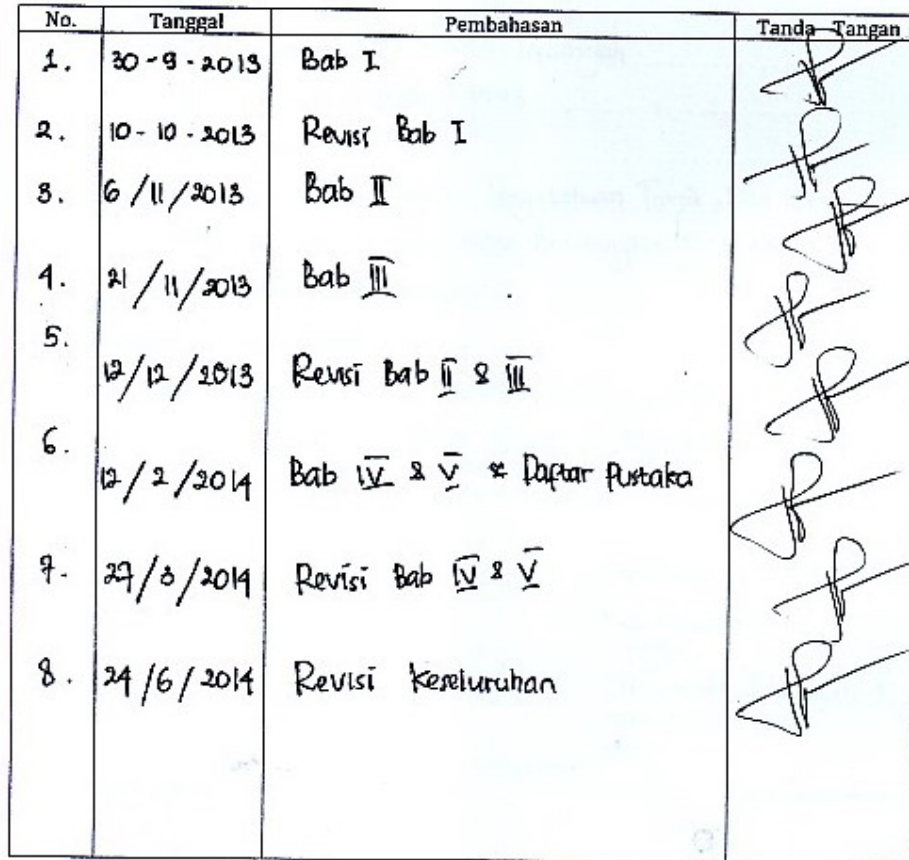 No. Tanggal Pembahasan Tanda Tangan
1. 30-9-2013 Bab I
2. 10-10-2013 Revisi Bab I
3. 6/11/2013 Bab II
4. 21/11/2013 Bab III
5. 12/12/2013 Revisi Bab II & III
6. 12/2/2014 Bab IV & V & Daftar Pustaka
7. 27/3/2014 Revisi Bab IV & V
8. 24/6/2014 Revisi Keseluruhan